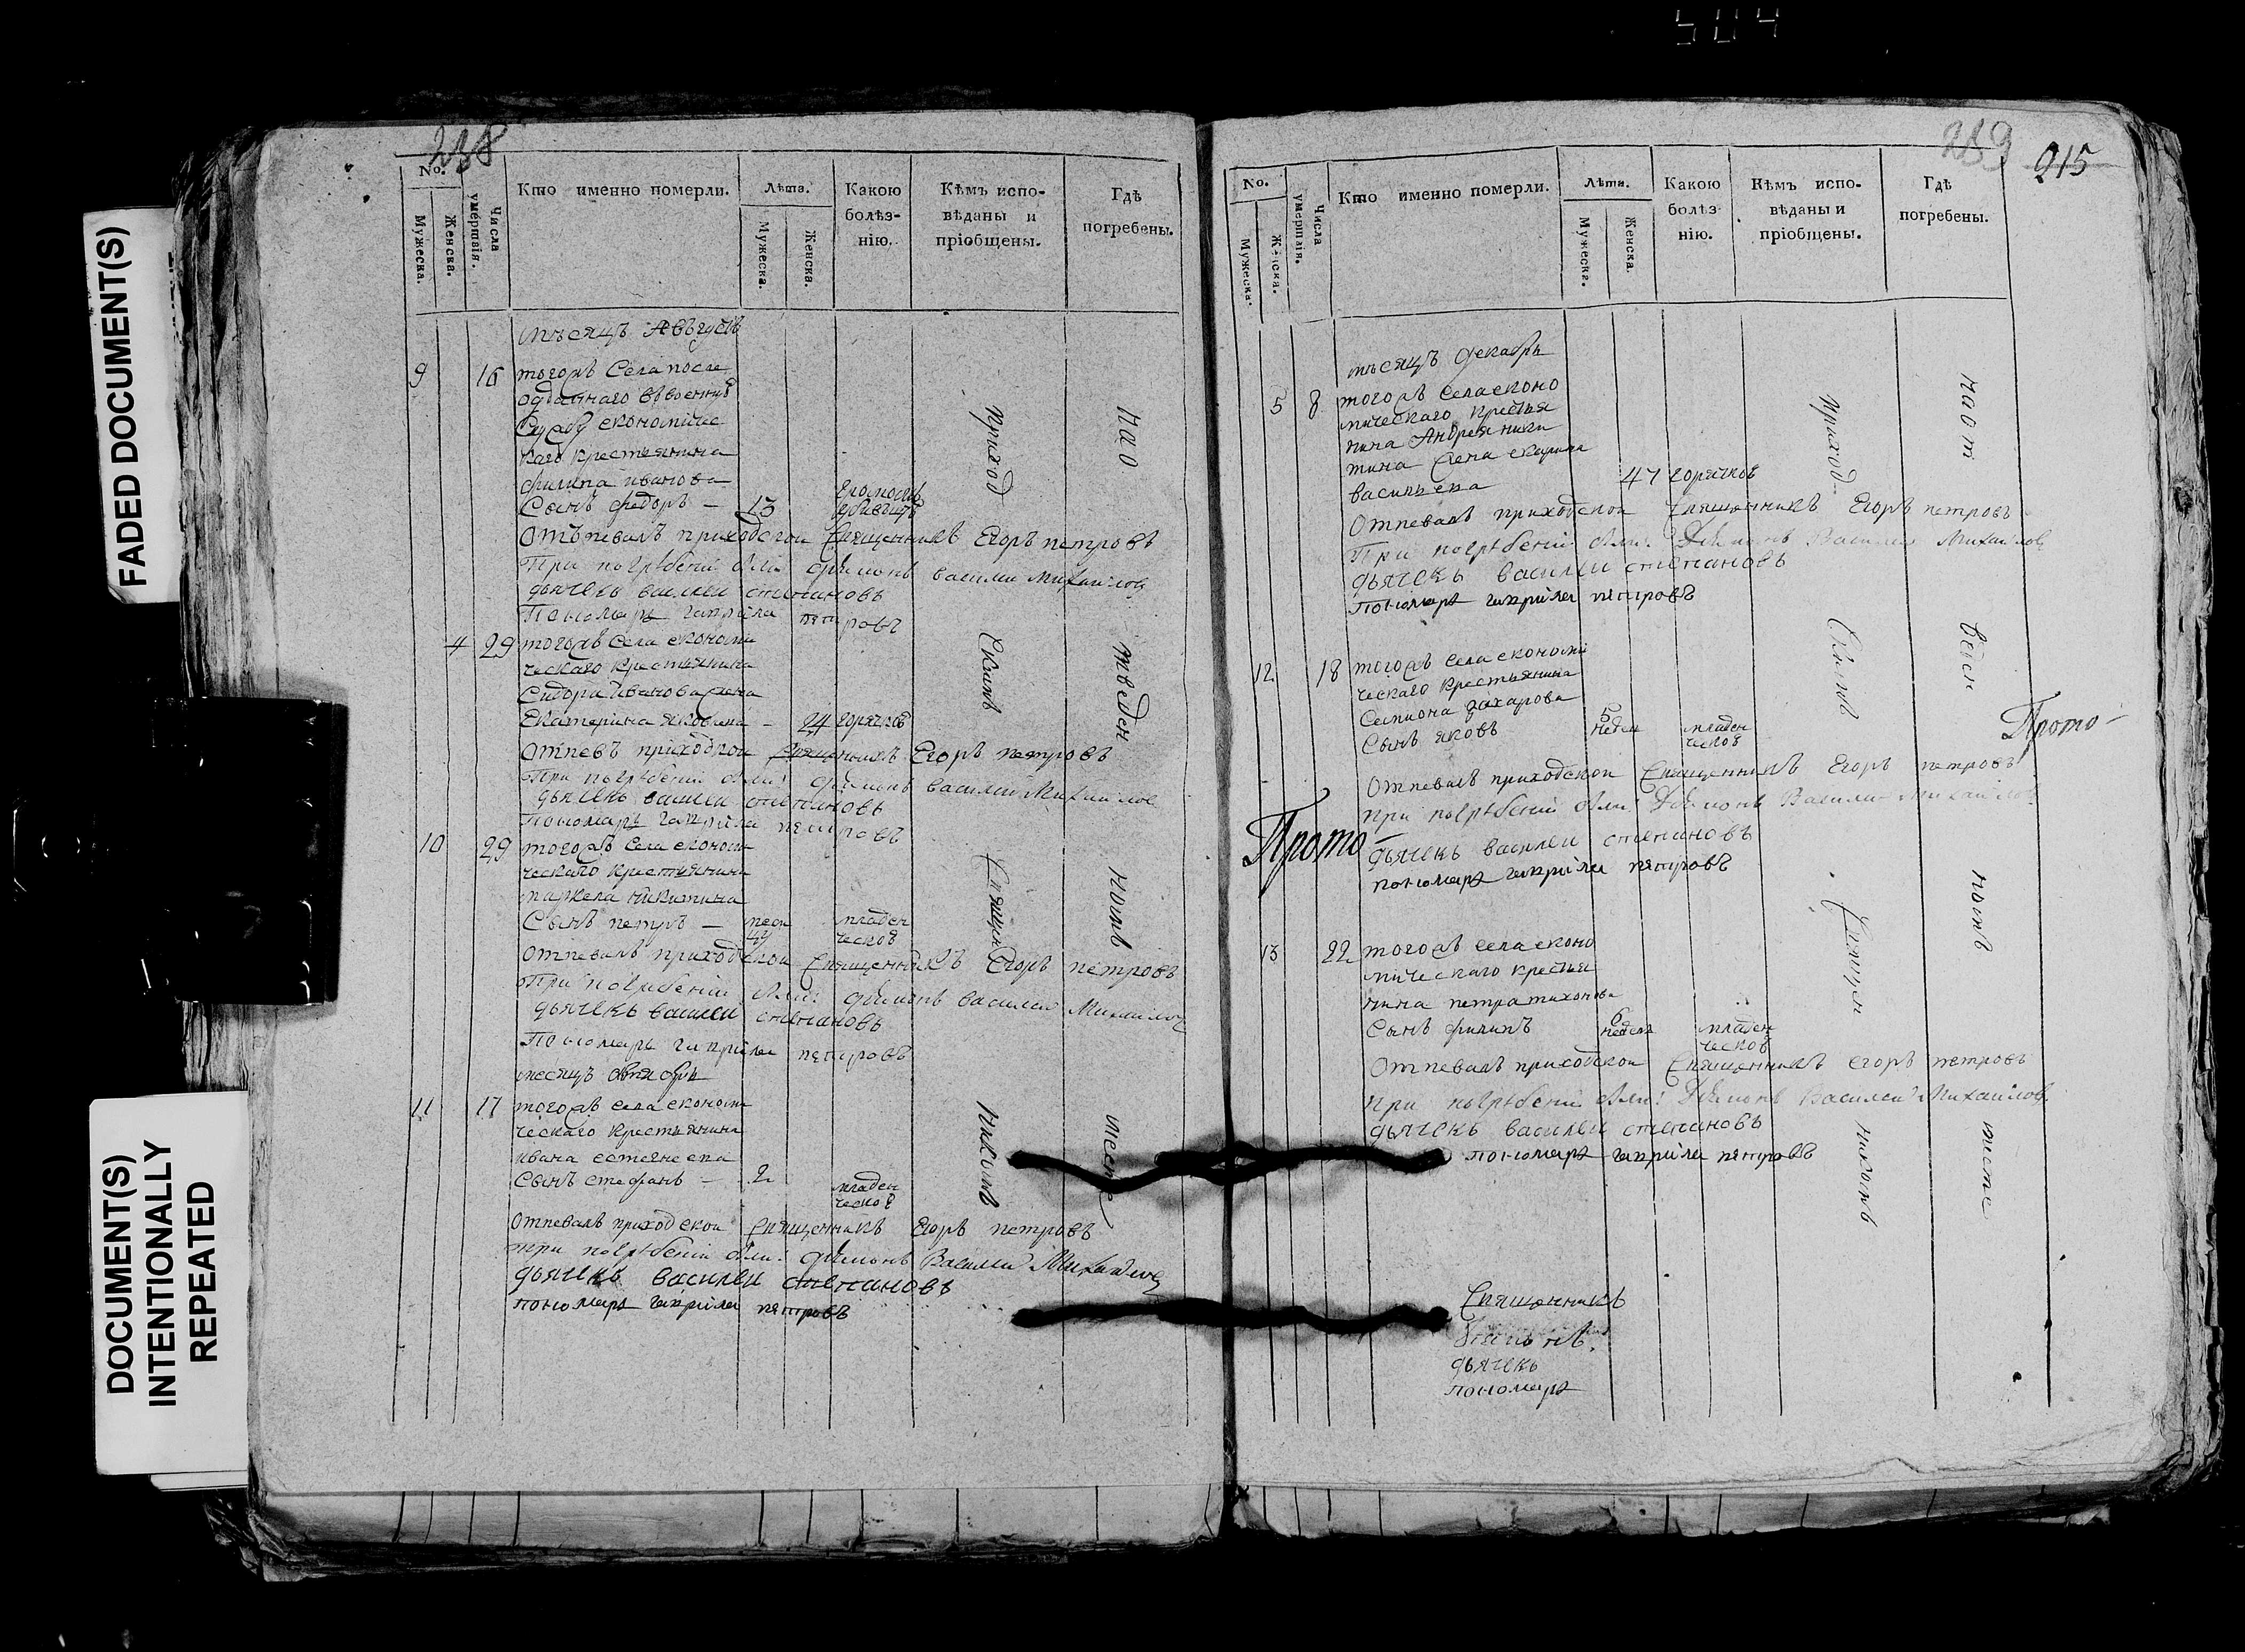 504
FADED DOCUMENT(S)
DOCUMENT(S)
INTENTIONALLY
REPEATED
238
No.
Мужеска.
Женска.
Числа умершія.
Кто именно померли.
Лѣта.
Мужеска.
Женска.
Какою болѣз-
нію.
Кѣмъ испо-
вѣданы и
пріобщены.
Гдѣ
погребены.
мѣсяцъ Августъ
9 16 тогожъ Села после
Экономичес
каго крестьянина
филипа иванова
Сынъ федоръ — 13
Отъпевалъ приходскои Священникъ Егоръ петровъ
При погрѣбении были диаконъ василии Михаиловъ
дьячекъ василеи степановъ
Пономарь гаврила петровъ
4 29 тогожъ Села економи
ческаго крестьянина
Сидора Иванова жена
Екатерина яковлева — 24 горячкою
Отпевъ приходскои Священникъ Егоръ петровъ
При погрѣбении были диаконъ василии Михаилов
дьячекъ василеи степановъ
Пономарь гаврила петровъ
10 29 тогожъ Села економи
ческаго крестьянина
маркела никитина
Сынъ петръ — младен
ческою
Отпевалъ приходскои Священникъ Егоръ петровъ
При погрибении были диаконъ василеи Михаиловъ
дьячекъ василеи степановъ
Пономарь гаврила петровъ
11 17 тогожъ села економи
ческаго крестьянина
ивана
Сынъ стефанъ — 2 младен
ческою
Отпевалъ приходскои Священникъ Егоръ петровъ
при погрѣбении были диаконъ Василии Михаиловъ
дьячекъ василеи степановъ
пономарь гаврила петровъ
приход
Священ
никомъ
на о
тведен
номъ
месте
289 215
No.
Мужеска.
Женска.
Числа умершія.
Кто именно померли.
Лѣта.
Мужеска.
Женска.
Какою
болѣз-
нію.
Кѣмъ испо-
вѣданы и
пріобщены.
Гдѣ
погребены.
мѣсяцъ декабрь
5 8 тогожъ села еконо
мическаго крестья
нина Андрея ники
тина жена
васильева 47 горячкою
Отпевалъ приходскои Священникъ Егоръ петровъ
При погрѣбении были диаконъ Василии Михаиловъ
дьячекъ василеи степановъ
пономарь гаврила петровъ
12 18 тогожъ села економи
ческаго крестьянина
Семиона захарова
Сынъ яковъ 5 недел младен
ческою
Отпевалъ приходскои Священникъ Егоръ петровъ
при погрѣбении были диаконъ Василии Михаилов
дьячекъ василеи степановъ
пономарь гаврила петровъ
Прото-
Прото-
13 22 тогожъ села еконо
мическаго крестья
нина петра тихонова
Сынъ филипъ 6 недел младен
ческою
Отпевалъ приходскои Священникъ егоръ петровъ
при погрѣбении были диаконъ Василеи Михаиловъ
дьячекъ василеи степановъ
пономарь гаврила петровъ
приход
Священ
никомъ
на от
веден
номъ
месте
Священникъ
дьячекъ
пономарь